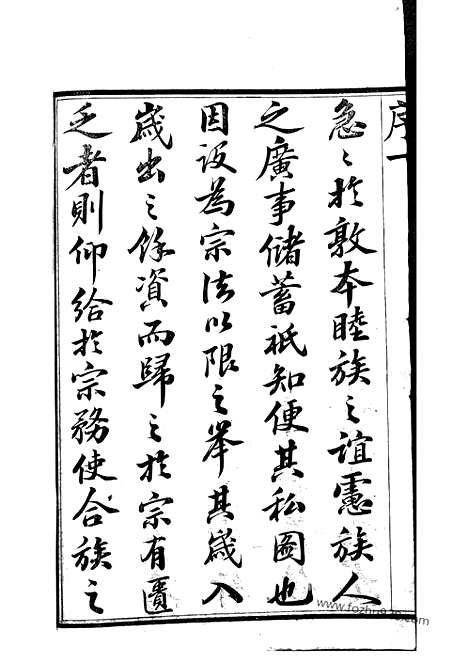 序一
急〻於敦本睦族之誼慮族人
之廣事儲蓄祇知便其私圖也
因设為宗法以限之举其歲入
歲出之餘資而歸之於宗有匱
乏者則仰給於宗務使合族之
www.fozhu920.com